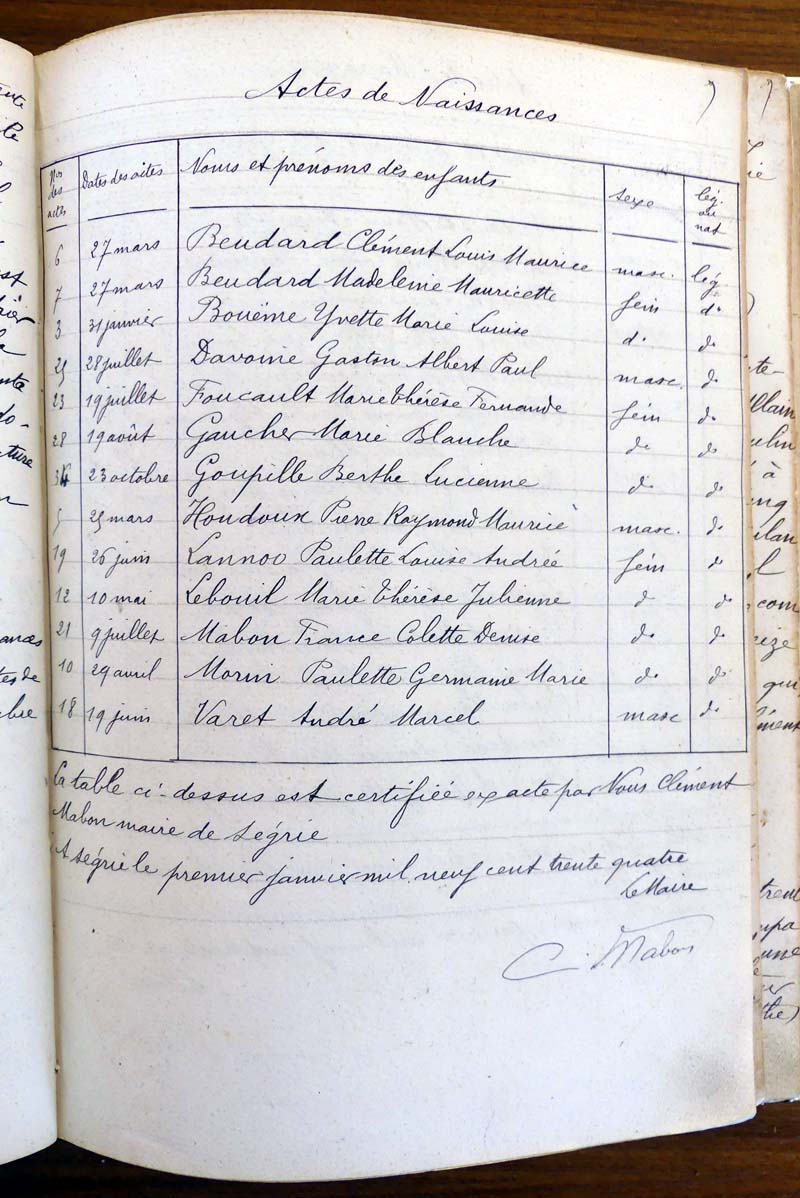 Actes de Naissances
Nos des actes Dates des actes Noms et prénoms des enfants sexe lég. ou nat
6 27 mars Beudard Clément Louis Maurice masc. lég
7 27 mars Beudard Madeleine Mauricette fém do
3 31 janvier Bouëme Yvette Marie Louise do do
25 28 juillet Davoine Gaston Albert Paul masc. do
23 19 juillet Foucault Marie Thérèse Fernande fém do
28 19 août Gaucher Marie Blanche do do
34 23 octobre Goupille Berthe Lucienne do do
5 25 mars Houdoux Pierre Raymond Maurice masc. do
19 26 juin Lannoo Paulette Louise Andrée fém do
12 10 mai Lebouil Marie Thérèse Julienne do do
21 9 juillet Mabon France Colette Denise do do
10 29 avril Morin Paulette Germaine Marie do do
18 19 juin Varet André Marcel masc do
La table ci-dessus est certifiée exacte par Nous Clément
Mabon maire de Ségrie
A Ségrie le premier janvier mil neuf cent trente quatre
Le Maire
C. Mabon